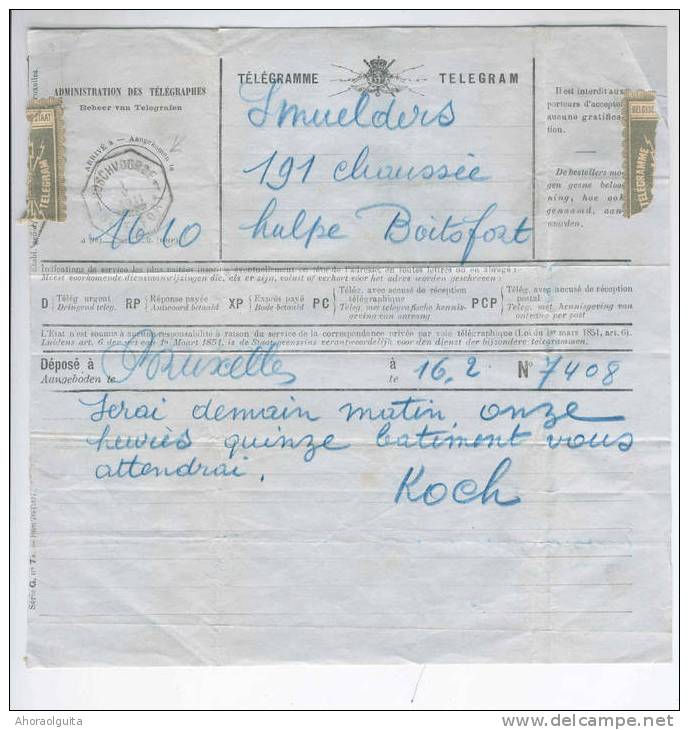 ADMINISTRATION DES TÉLÉGRAPHES
Beheer van Telegrafen
TÉLÉGRAMME TELEGRAM
Il est interdit aux
porteurs d'accepter
aucune gratifica-
tion.
De bestellers mo-
gen geene beloo-
ning, hoe ook
genaamd, aan-
vaarden.
TELEGRAM
BELGIQUE
TÉLÉGRAMME
ARRIVÉ à — Aangekomen te
Smuelders
191 chaussée
hulpe Boitsfort
1610
Indications de service les plus usitées inscrites éventuellement en tête de l'adresse, en toutes lettres ou en abrégé :
Meest voorkomende dienstaanwijzingen die, als er zijn, voluit of verkort vóór het adres worden geschreven :
D Télég urgent
Dringend teleg.
RP Réponse payée
Antwoord betaald
XP Exprès payé
Bode betaald
PC Télég. avec accusé de réception
télégraphique
Teleg. met telegrafische kennis-
geving van ontvang
PCP Télég. avec accusé de réception
postal
Teleg. met kennisgeving van
ontvang per post
L'État n'est soumis à aucune responsabilité à raison du service de la correspondance privée par voie télégraphique (Loi du 1er mars 1851, art. 6).
Luidens art. 6 der wet van 1n Maart 1851, is de Staat geenszins verantwoordelijk voor den dienst der bijzondere telegrammen.
Déposé à Bruxelles à 16.2 No 7408
Aangeboden te te
Serai demain matin onze
heures quinze batiment vous
attendrai.
Koch
Série G, no 7
Ahoraolguita
www.delcampe.net